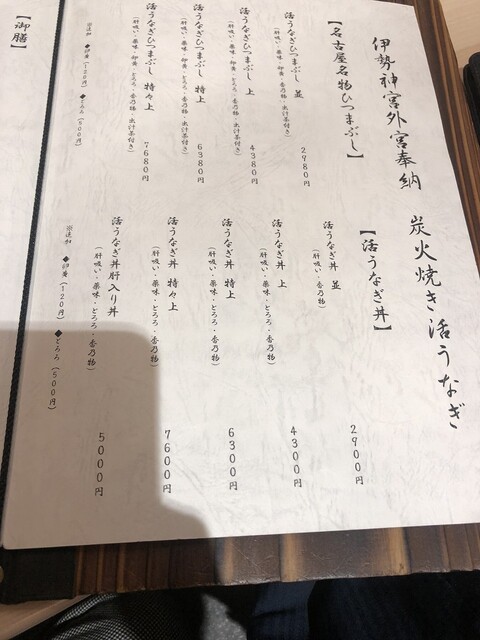 伊勢神宮外宮奉納 炭火焼き活うなぎ
【名古屋名物ひつまぶし】
活うなぎひつまぶし 並
(肝吸い・薬味・卵黄・とろろ・香乃物・出汁茶付き)
2980円
活うなぎひつまぶし 上
(肝吸い・薬味・卵黄・とろろ・香乃物・出汁茶付き)
4380円
活うなぎひつまぶし 特上
(肝吸い・薬味・卵黄・とろろ・香乃物・出汁茶付き)
6380円
活うなぎひつまぶし 特々上
(肝吸い・薬味・卵黄・とろろ・香乃物・出汁茶付き)
7680円
※追加 ◆卵黄(120円) ◆とろろ(500円)
【活うなぎ丼】
活うなぎ丼 並
(肝吸い・薬味・香乃物)
2900円
活うなぎ丼 上
(肝吸い・薬味・とろろ・香乃物)
4300円
活うなぎ丼 特上
(肝吸い・薬味・とろろ・香乃物)
6300円
活うなぎ丼 特々上
(肝吸い・薬味・とろろ・香乃物)
7600円
活うなぎ丼肝入り丼
(肝吸い・薬味・とろろ・香乃物)
5000円
※追加 ◆卵黄(120円) ◆とろろ(500円)
【御膳】